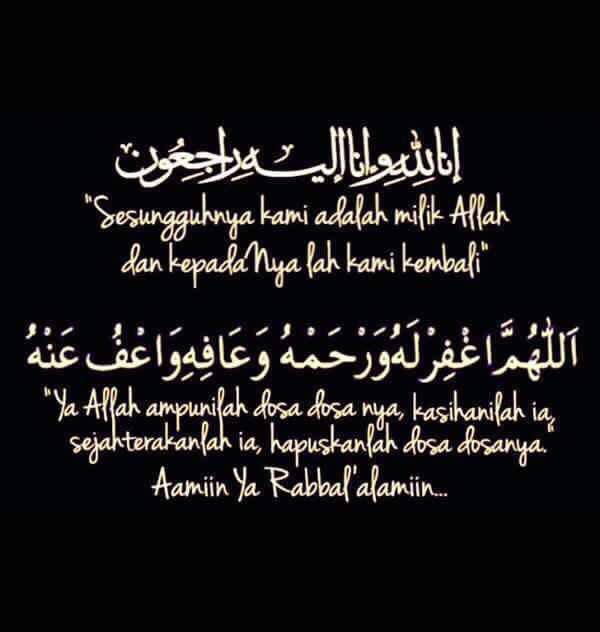 إنا لله وإنا إليه راجعون
"Sesungguhnya kami adalah milik Allah
dan kepadaNya lah kami kembali"
اَللّٰهُمَّ اغْفِرْ لَهُ وَرْحَمْهُ وَعَافِهِ وَاعْفُ عَنْهُ
"Ya Allah ampunilah dosa dosa nya, kasihanilah ia,
sejahterakanlah ia, hapuskanlah dosa dosanya."
Aamiin Ya Rabbal'alamiin...